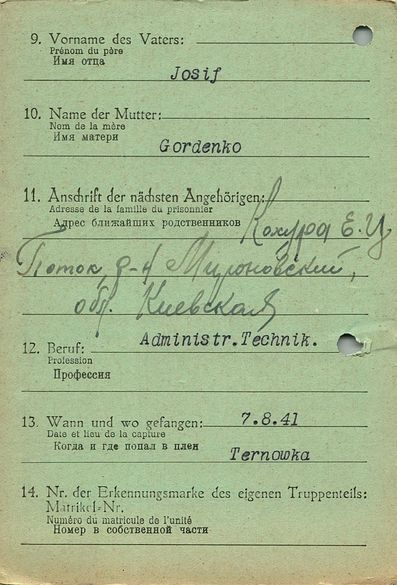 9. Vorname des Vaters:
Prénom du père
Имя отца
Josif
10. Name der Mutter:
Nom de la mère
Имя матери
Gordenko
11. Anschrift der nächsten Angehörigen:
Adresse de la famille du prisonnier
Адрес ближайших родственников
Кохура Е.И
Поток, р-н Мироновский,
обл. Киевская
Administr.Technik.
12. Beruf:
Profession
Профессия
13. Wann und wo gefangen: 7.8.41
Date et lieu de la capture
Когда и где попал в плен
Ternowka
14. Nr. der Erkennungsmarke des eigenen Truppenteils:
Matrikel-Nr.
Numéro du matricule de l'unité
Номер в собственной части